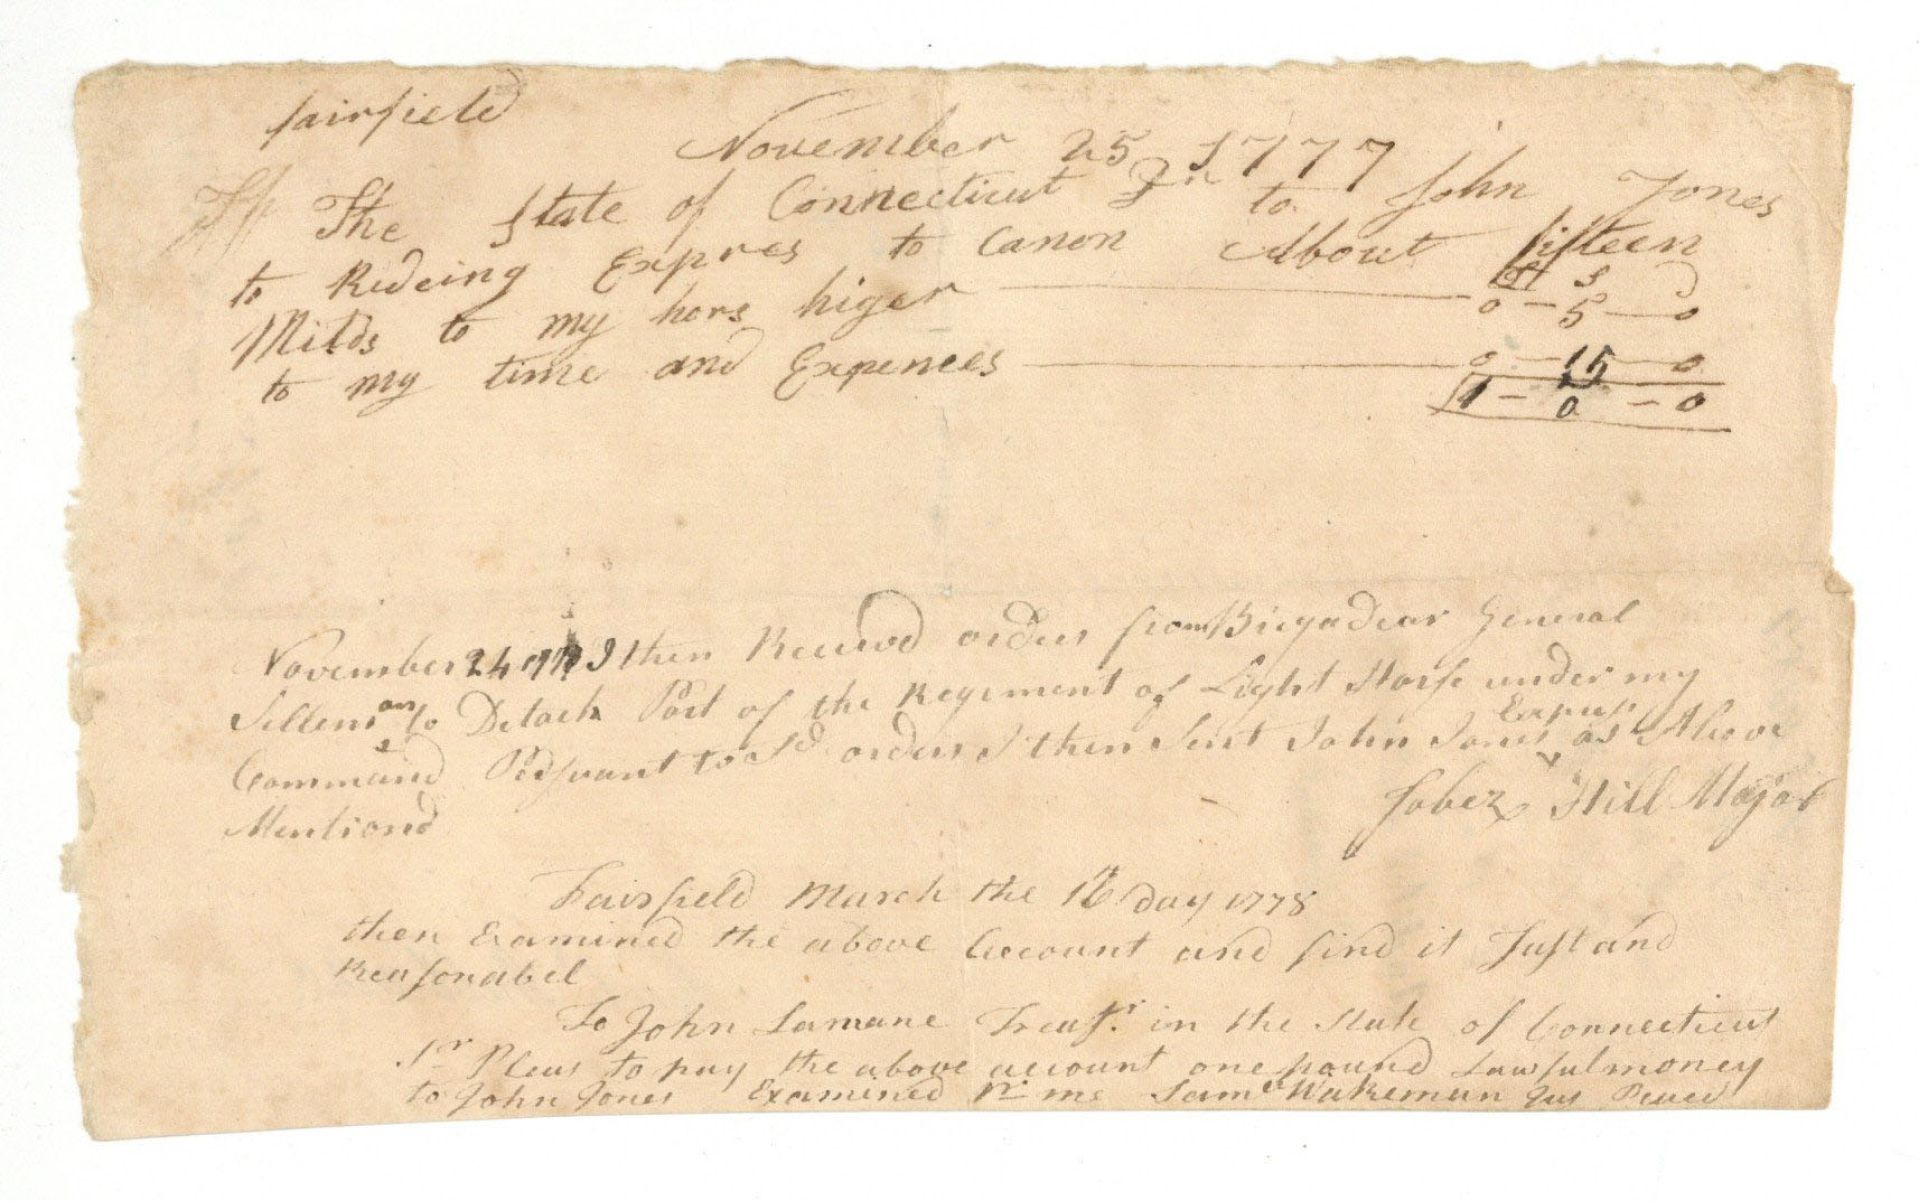 fairfield
November 25 1777
The State of Connecticut Dr to John Jones
to Rideing Expres to Canon About fifteen
Milds to my hors higer £ s d
0 - 5 - 0
to my time and Expences 0 - 15 - 0
1 - 0 - 0
November 24 1777 I then Received orders from Brigadear General
Sillemann to Detach Part of the Regiment of Light Horse under my
Command Persuant to sd orders I then Sent John Jones Express as Above
Mentiond
Jabez Hill Major
Fairfield March the 16th Day 1778
then Examined the above Account and find it Just and
Reasonabel
To John Lamane Treasr in the State of Connecticut
Sr Pleas to pay the above account one pound Lawful money
to John Jones Examined pr me Samel Wakeman Jus Peace